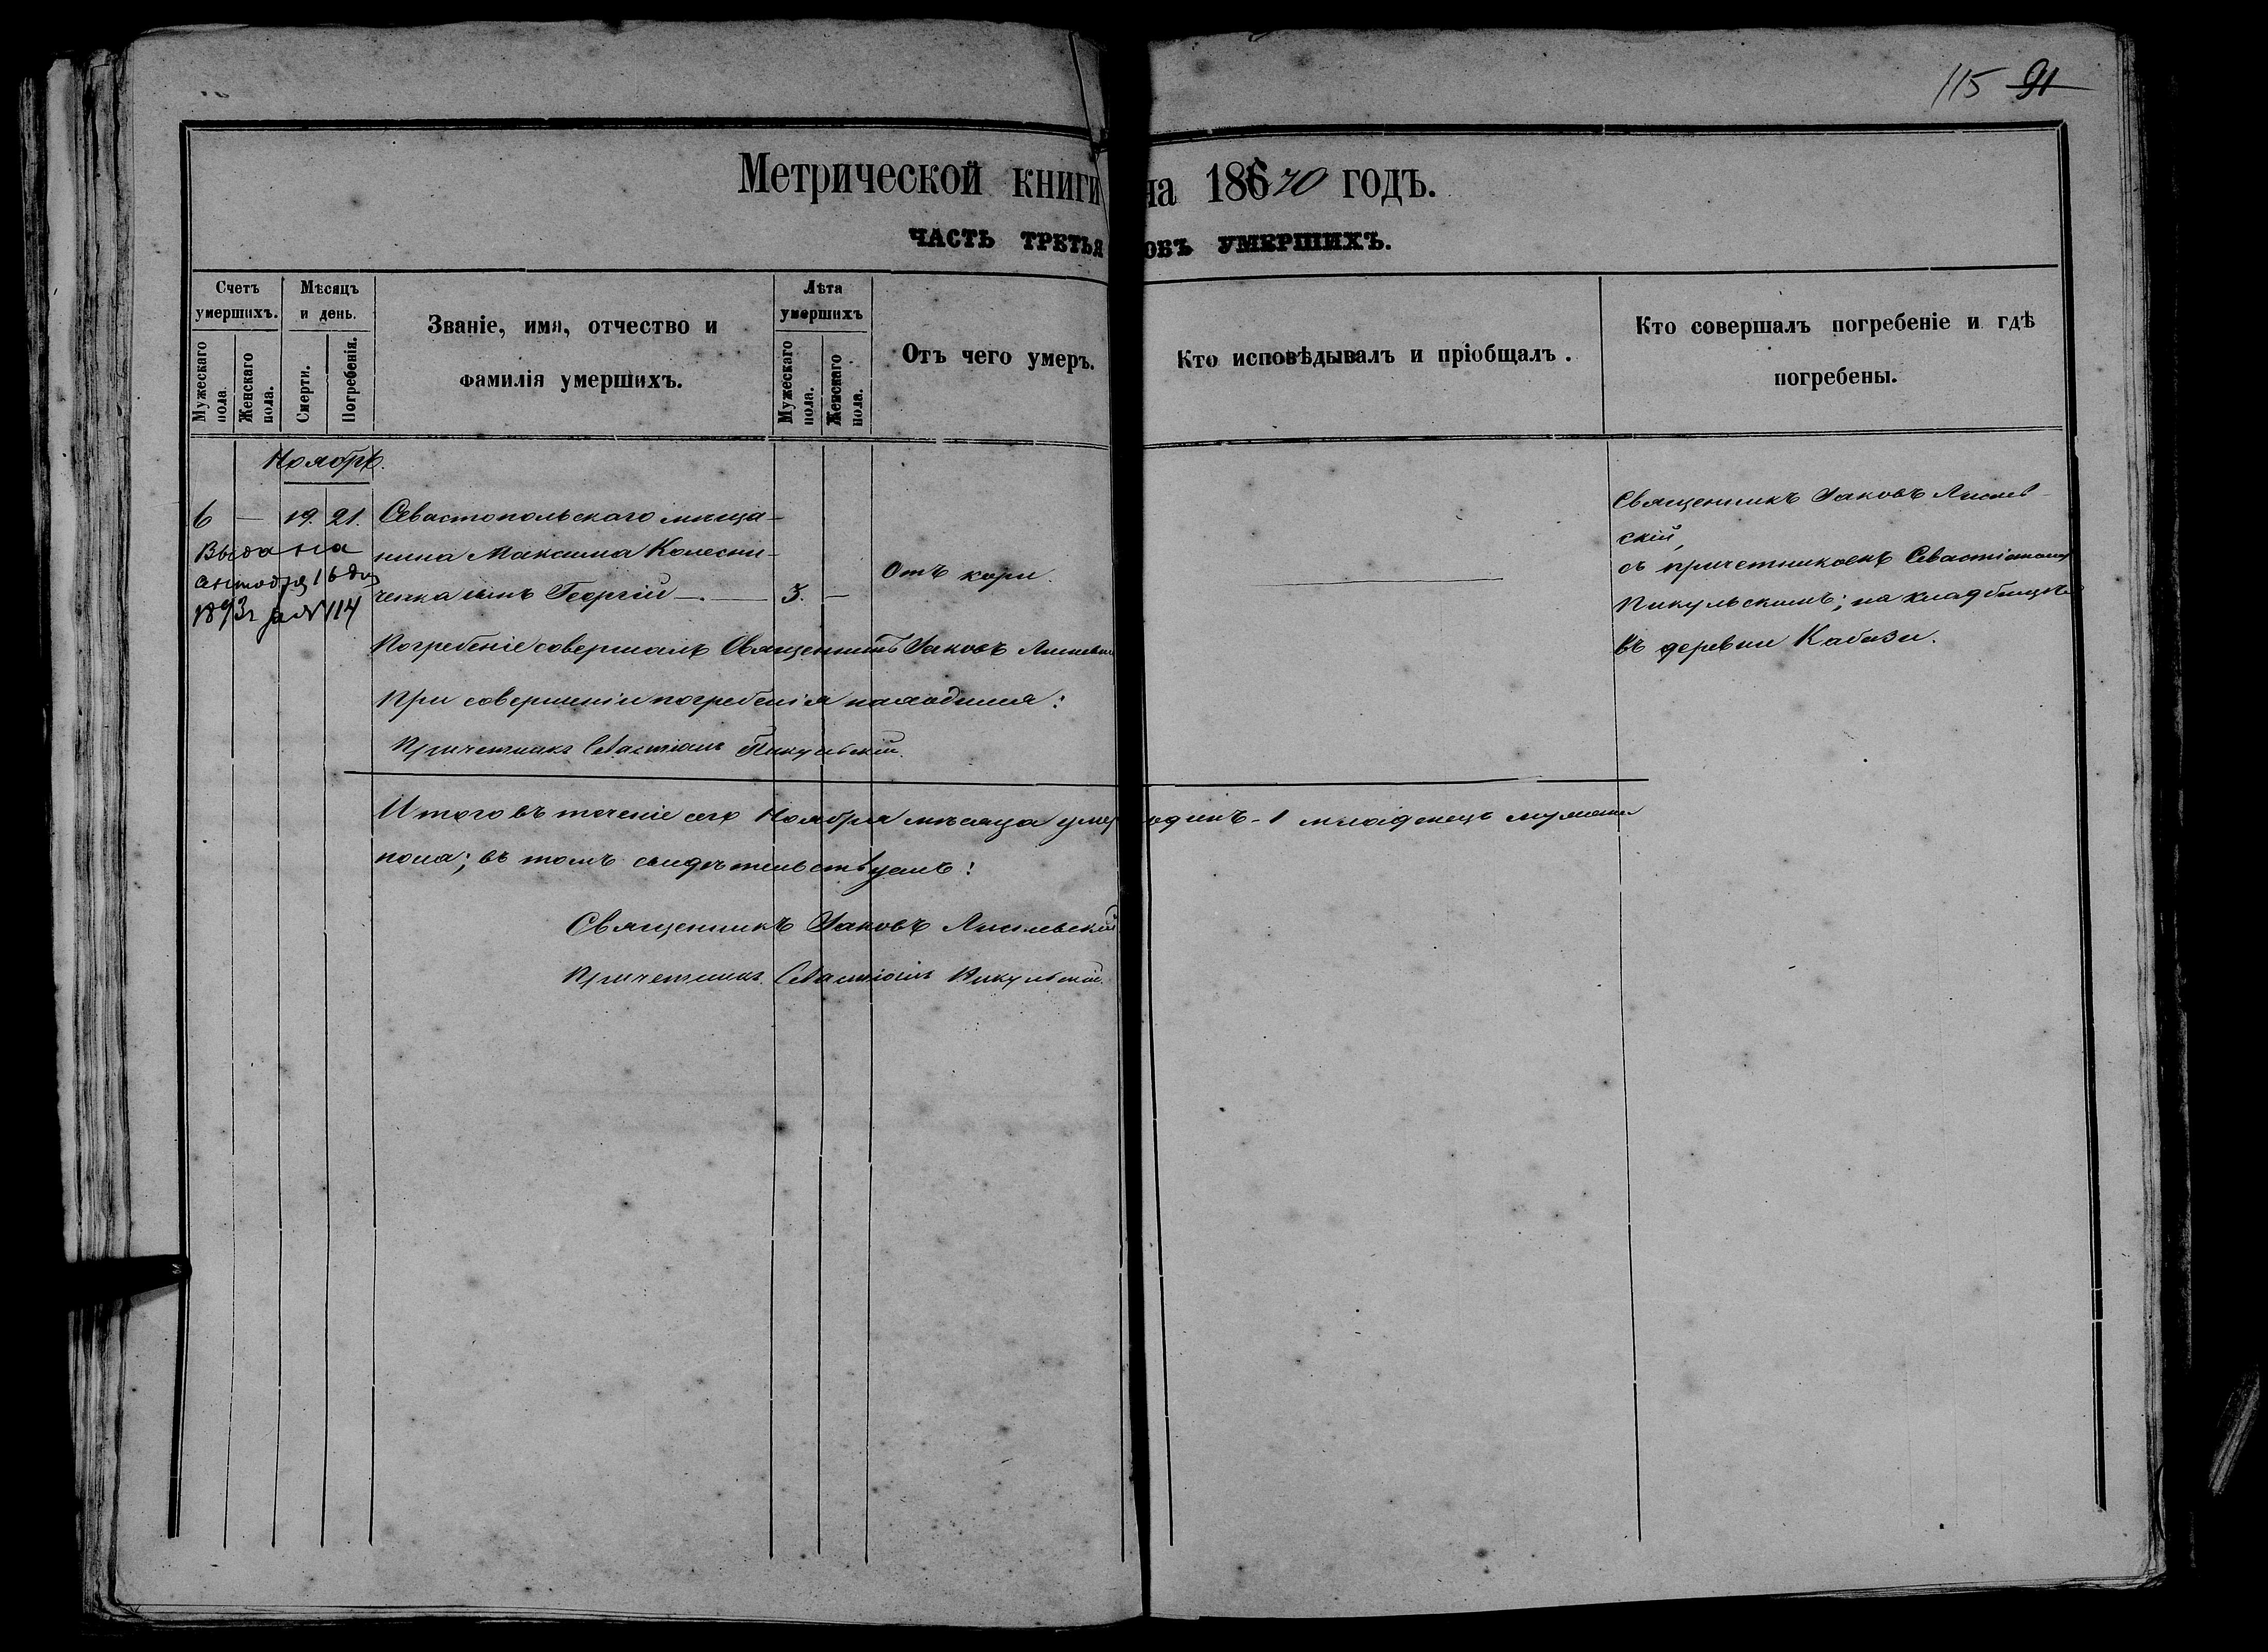 115 91
Метрической книги на 18670 годъ.
ЧАСТЬ ТРЕТЬЯ ОБЪ УМЕРШИХЪ.
Счетъ умершихъ.
Мужескаго пола.
Женскаго пола.
Мѣсяцъ и день.
Смерти.
Погребенія.
Званіе, имя, отчество и
фамилія умершихъ.
Лѣта умершихъ
Мужескаго пола.
Женскаго пола.
Отъ чего умеръ.
Кто исповѣдывалъ и пріобщалъ.
Кто совершалъ погребеніе и гдѣ
погребены.
Ноябрь.
6 — 19. 21. Севастопольскаго мѣща-
нина Максима Колесни-
ченка сынъ Георгій — 3. —
Отъ кори.
Выдана
16
1893г за № 114
Священникъ Іаковъ
скій,
съ причетникомъ Севастіаномъ
Пикульскимъ; на кладбищѣ
въ деревни Кабази.
Погребеніе совершалъ Священникъ Іаковъ
При совершеніи погребенія находился:
Причетникъ Севастіанъ Пикульскій.
Итого въ теченіе сего Ноября мѣсяца умеръ одинъ - 1 младенецъ мужеска
пола; въ томъ свидѣтельствуемъ:
Священникъ Іаковъ
Причетникъ Севастіанъ Пикульскій.